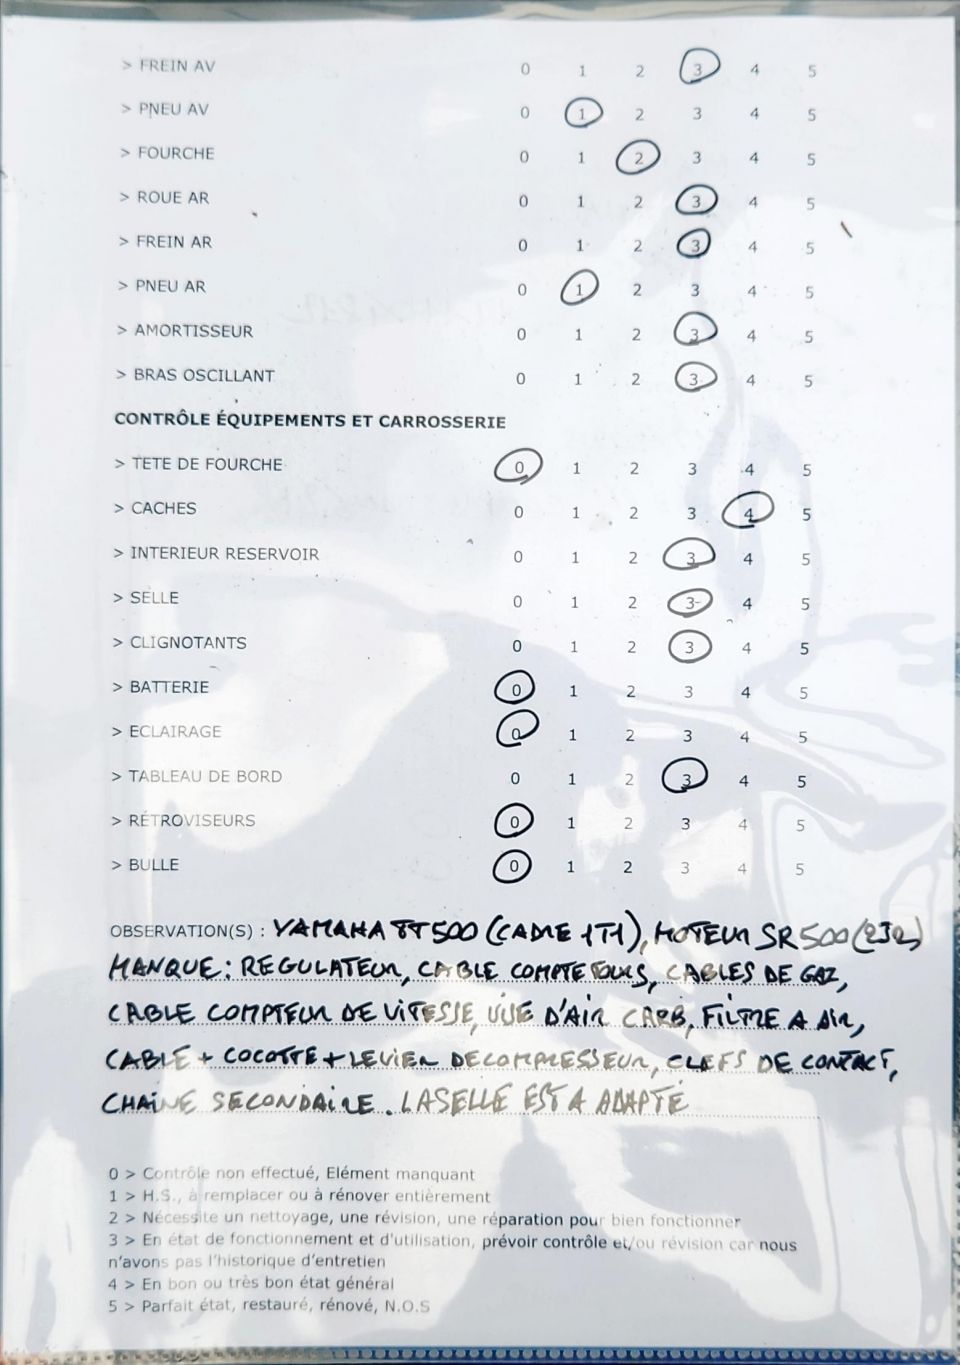 > FREIN AV 0 1 2 3 4 5
> PNEU AV 0 1 2 3 4 5
> FOURCHE 0 1 2 3 4 5
> ROUE AR 0 1 2 3 4 5
> FREIN AR 0 1 2 3 4 5
> PNEU AR 0 1 2 3 4 5
> AMORTISSEUR 0 1 2 3 4 5
> BRAS OSCILLANT 0 1 2 3 4 5
CONTRÔLE ÉQUIPEMENTS ET CARROSSERIE
> TETE DE FOURCHE 0 1 2 3 4 5
> CACHES 0 1 2 3 4 5
> INTERIEUR RESERVOIR 0 1 2 3 4 5
> SELLE 0 1 2 3 4 5
> CLIGNOTANTS 0 1 2 3 4 5
> BATTERIE 0 1 2 3 4 5
> ECLAIRAGE 0 1 2 3 4 5
> TABLEAU DE BORD 0 1 2 3 4 5
> RÉTROVISEURS 0 1 2 3 4 5
> BULLE 0 1 2 3 4 5
OBSERVATION(S) : YAMAHA TT500 (CADRE 1T1), MOTEUR SR500 (2J2)
MANQUE : REGULATEUR, CABLE COMPTE TOURS, CABLES DE GAZ,
CABLE COMPTEUR DE VITESSE, VISE D'AIR CARB, FILTRE A AIR,
CABLE + COCOTTE + LEVIER DECOMPRESSEUR, CLEFS DE CONTACT,
CHAINE SECONDAIRE. LA SELLE EST A ADAPTÉ
0 > Contrôle non effectué, Elément manquant
1 > H.S., à remplacer ou à rénover entièrement
2 > Nécessite un nettoyage, une révision, une réparation pour bien fonctionner
3 > En état de fonctionnement et d'utilisation, prévoir contrôle et/ou révision car nous
n'avons pas l'historique d'entretien
4 > En bon ou très bon état général
5 > Parfait état, restauré, rénové, N.O.S